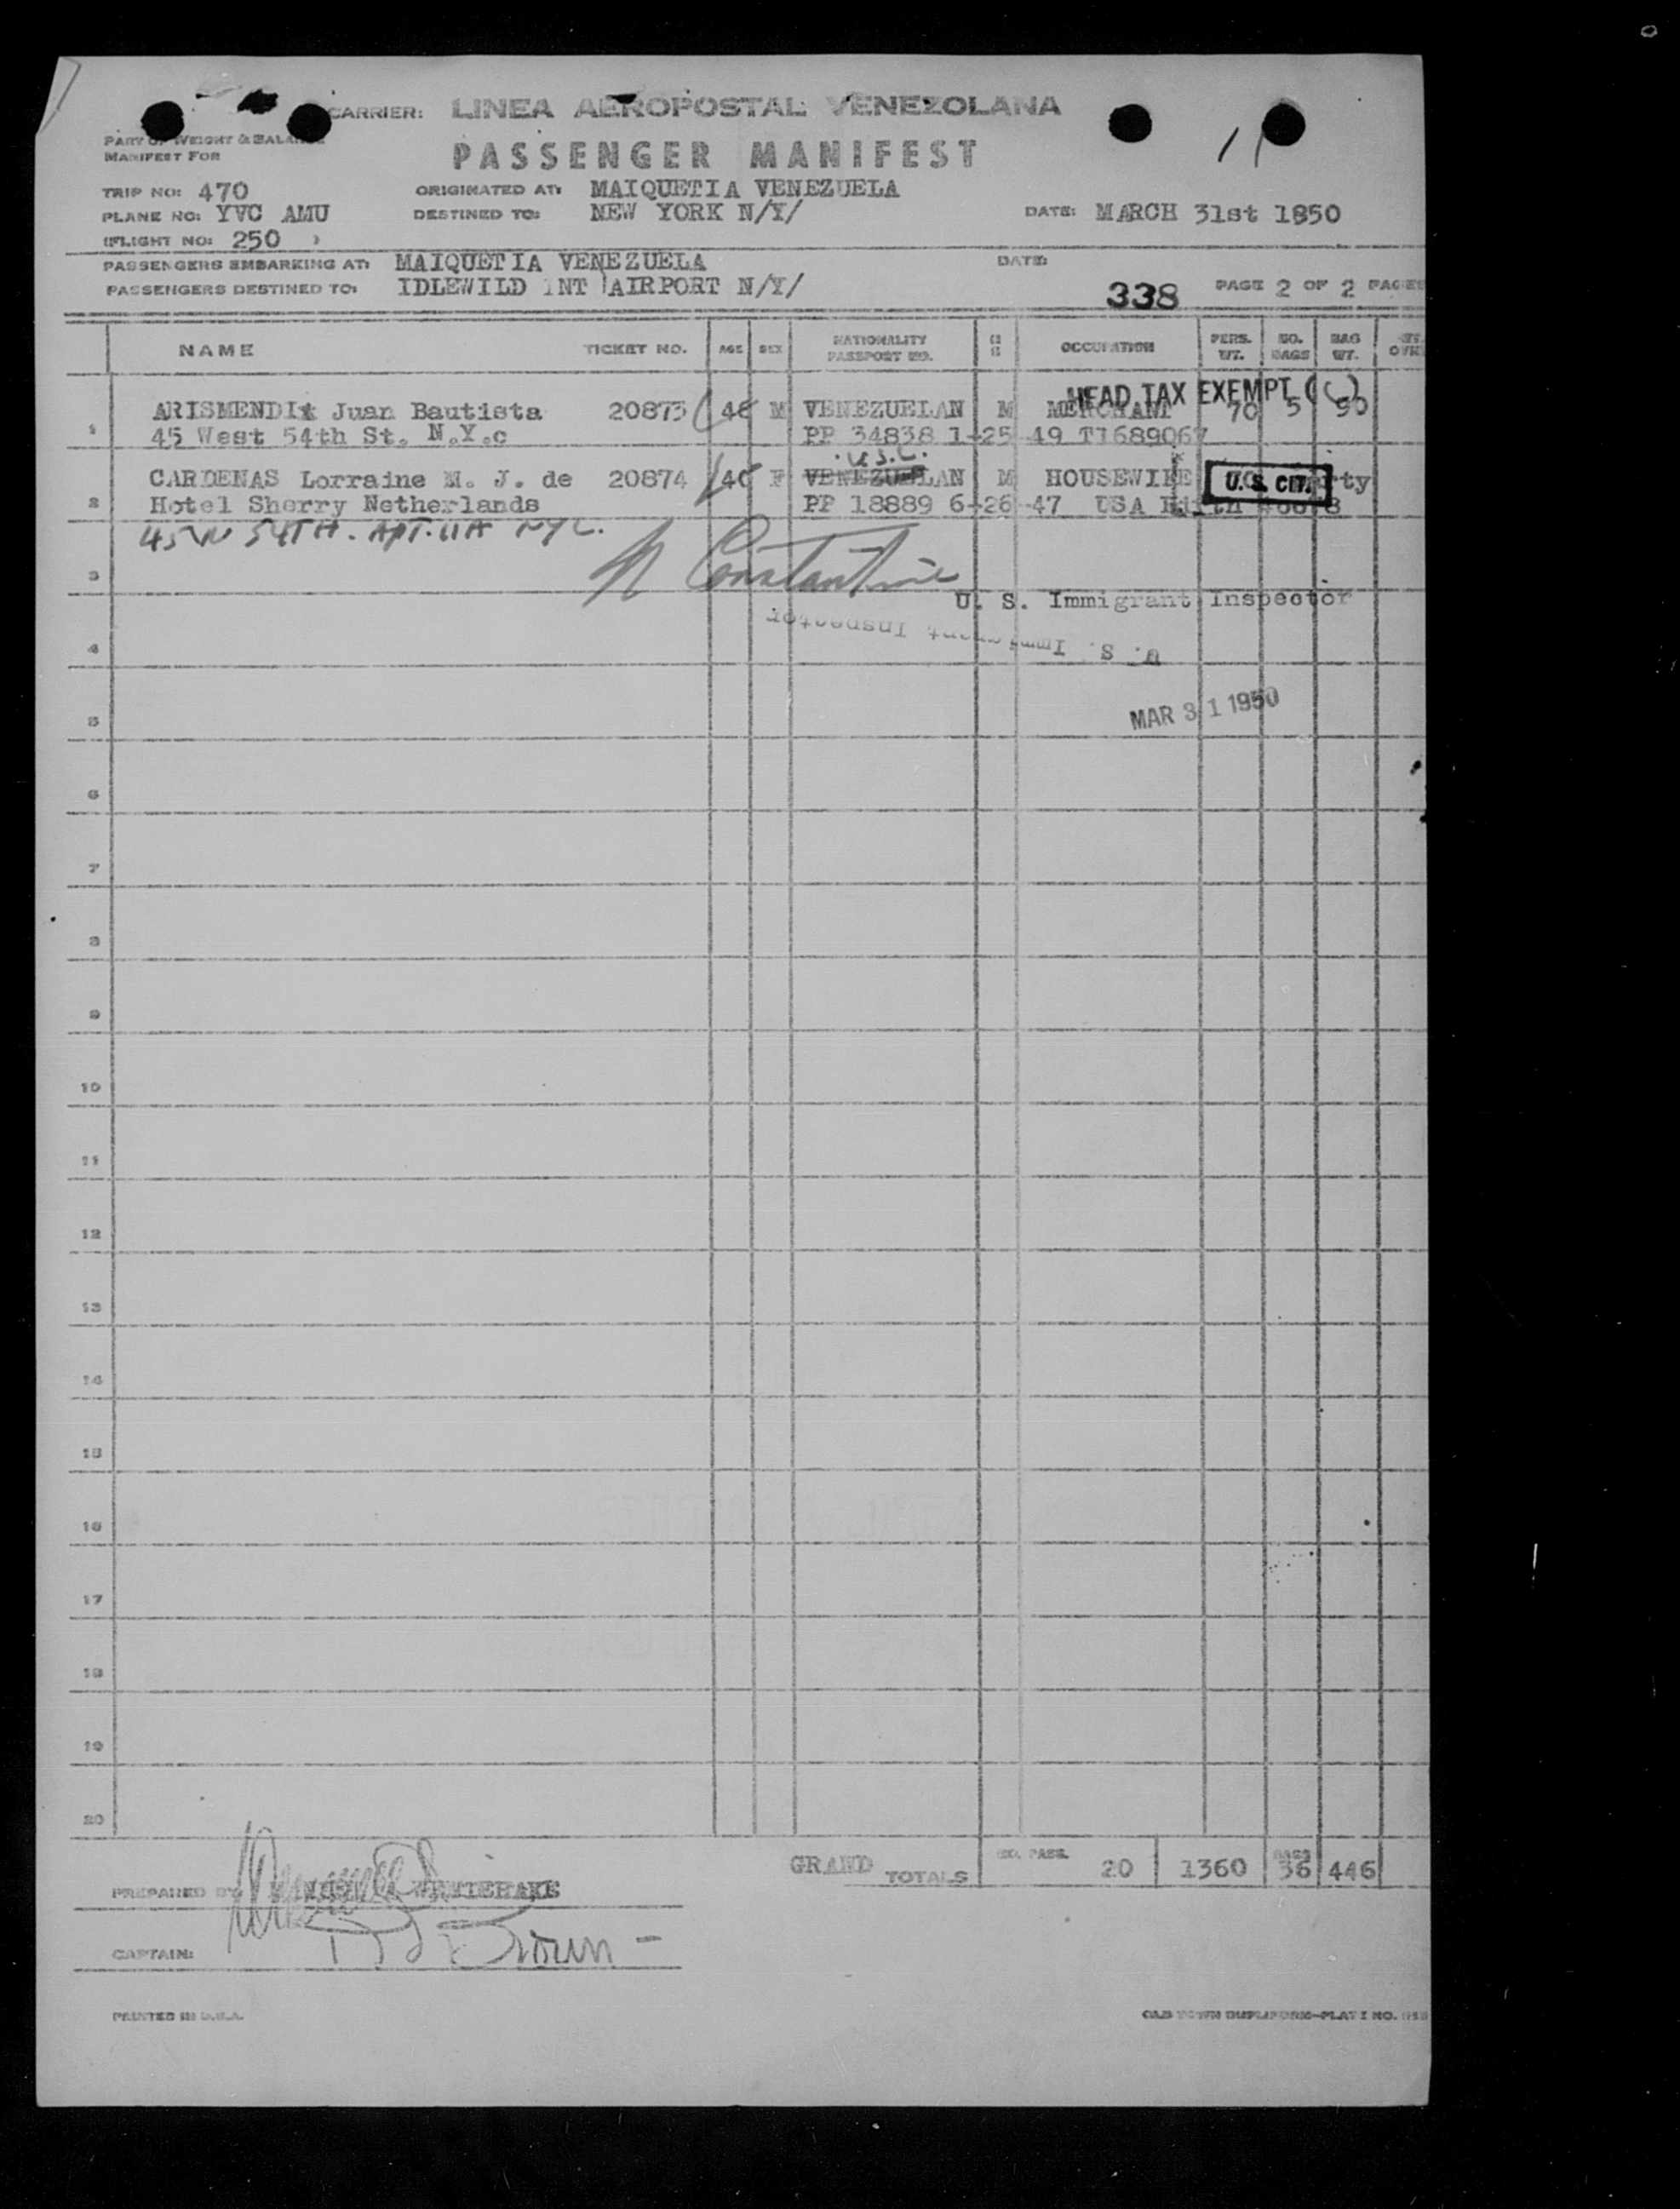 CARRIER: LINEA AEROPOSTAL VENEZOLANA
PART OF WEIGHT & BALANCE
MANIFEST FOR
PASSENGER MANIFEST
TRIP NO: 470 ORIGINATED AT: MAIQUETIA VENEZUELA
PLANE NO: YVC AMU DESTINED TO: NEW YORK N/Y/ DATE: MARCH 31st 1850
(FLIGHT NO: 250 )
PASSENGERS EMBARKING AT: MAIQUETIA VENEZUELA DATE:
PASSENGERS DESTINED TO: IDLEWILD INT AIRPORT N/Y/ 338 PAGE 2 OF 2 PAGES
NAME TICKET NO. AGE SEX NATIONALITY PASSPORT NO. OCCUPATION PERS. WT. NO. BAGS BAG WT.
HEAD TAX EXEMPT
1 ARISMENDI Juan Bautista 20873 M VENEZUELAN M MERCHANT 70 5
45 West 54th St. N.Y.c PP 34838 1-25 49 T1689067
U.S.C.
2 CARDENAS Lorraine M. J. de 20874 F VENEZUELAN M HOUSEWIFE U.S. CIT. rty
Hotel Sherry Netherlands PP 18889 6-26-47 USA
45 W 54TH. APT. 11A NYC.
3 N Constantine
U. S. Immigrant Inspector
U. S. Immigrant Inspector
4
MAR 31 1950
5
6
7
8
9
10
11
12
13
14
15
16
17
18
19
20
GRAND TOTALS NO. PASS. 20 1360 BAGS 36 446
PREPARED BY:
CAPTAIN: Brown
PRINTED IN U.S.A. OLD TOWN DUPLIFORM-PLAT I NO.